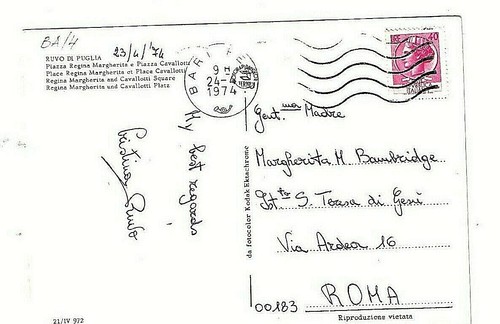 BA/4
23/4/'74
RUVO DI PUGLIA
Piazza Regina Margherita e Piazza Cavallotti
Place Regina Margherita et Place Cavallotti
Regina Margherita and Cavallotti Square
Regina Margherita und Cavallotti Platz
My best regards
Cristina Ruvo
21/IV 972
BARI
9 H
24-4
1974
40
da fotocolor Kodak Ektachrome
Gent.ma Madre
Margherita M. Bambridge
Ist.to S. Teresa di Gesù
Via Ardea 16
00183 ROMA
Riproduzione vietata